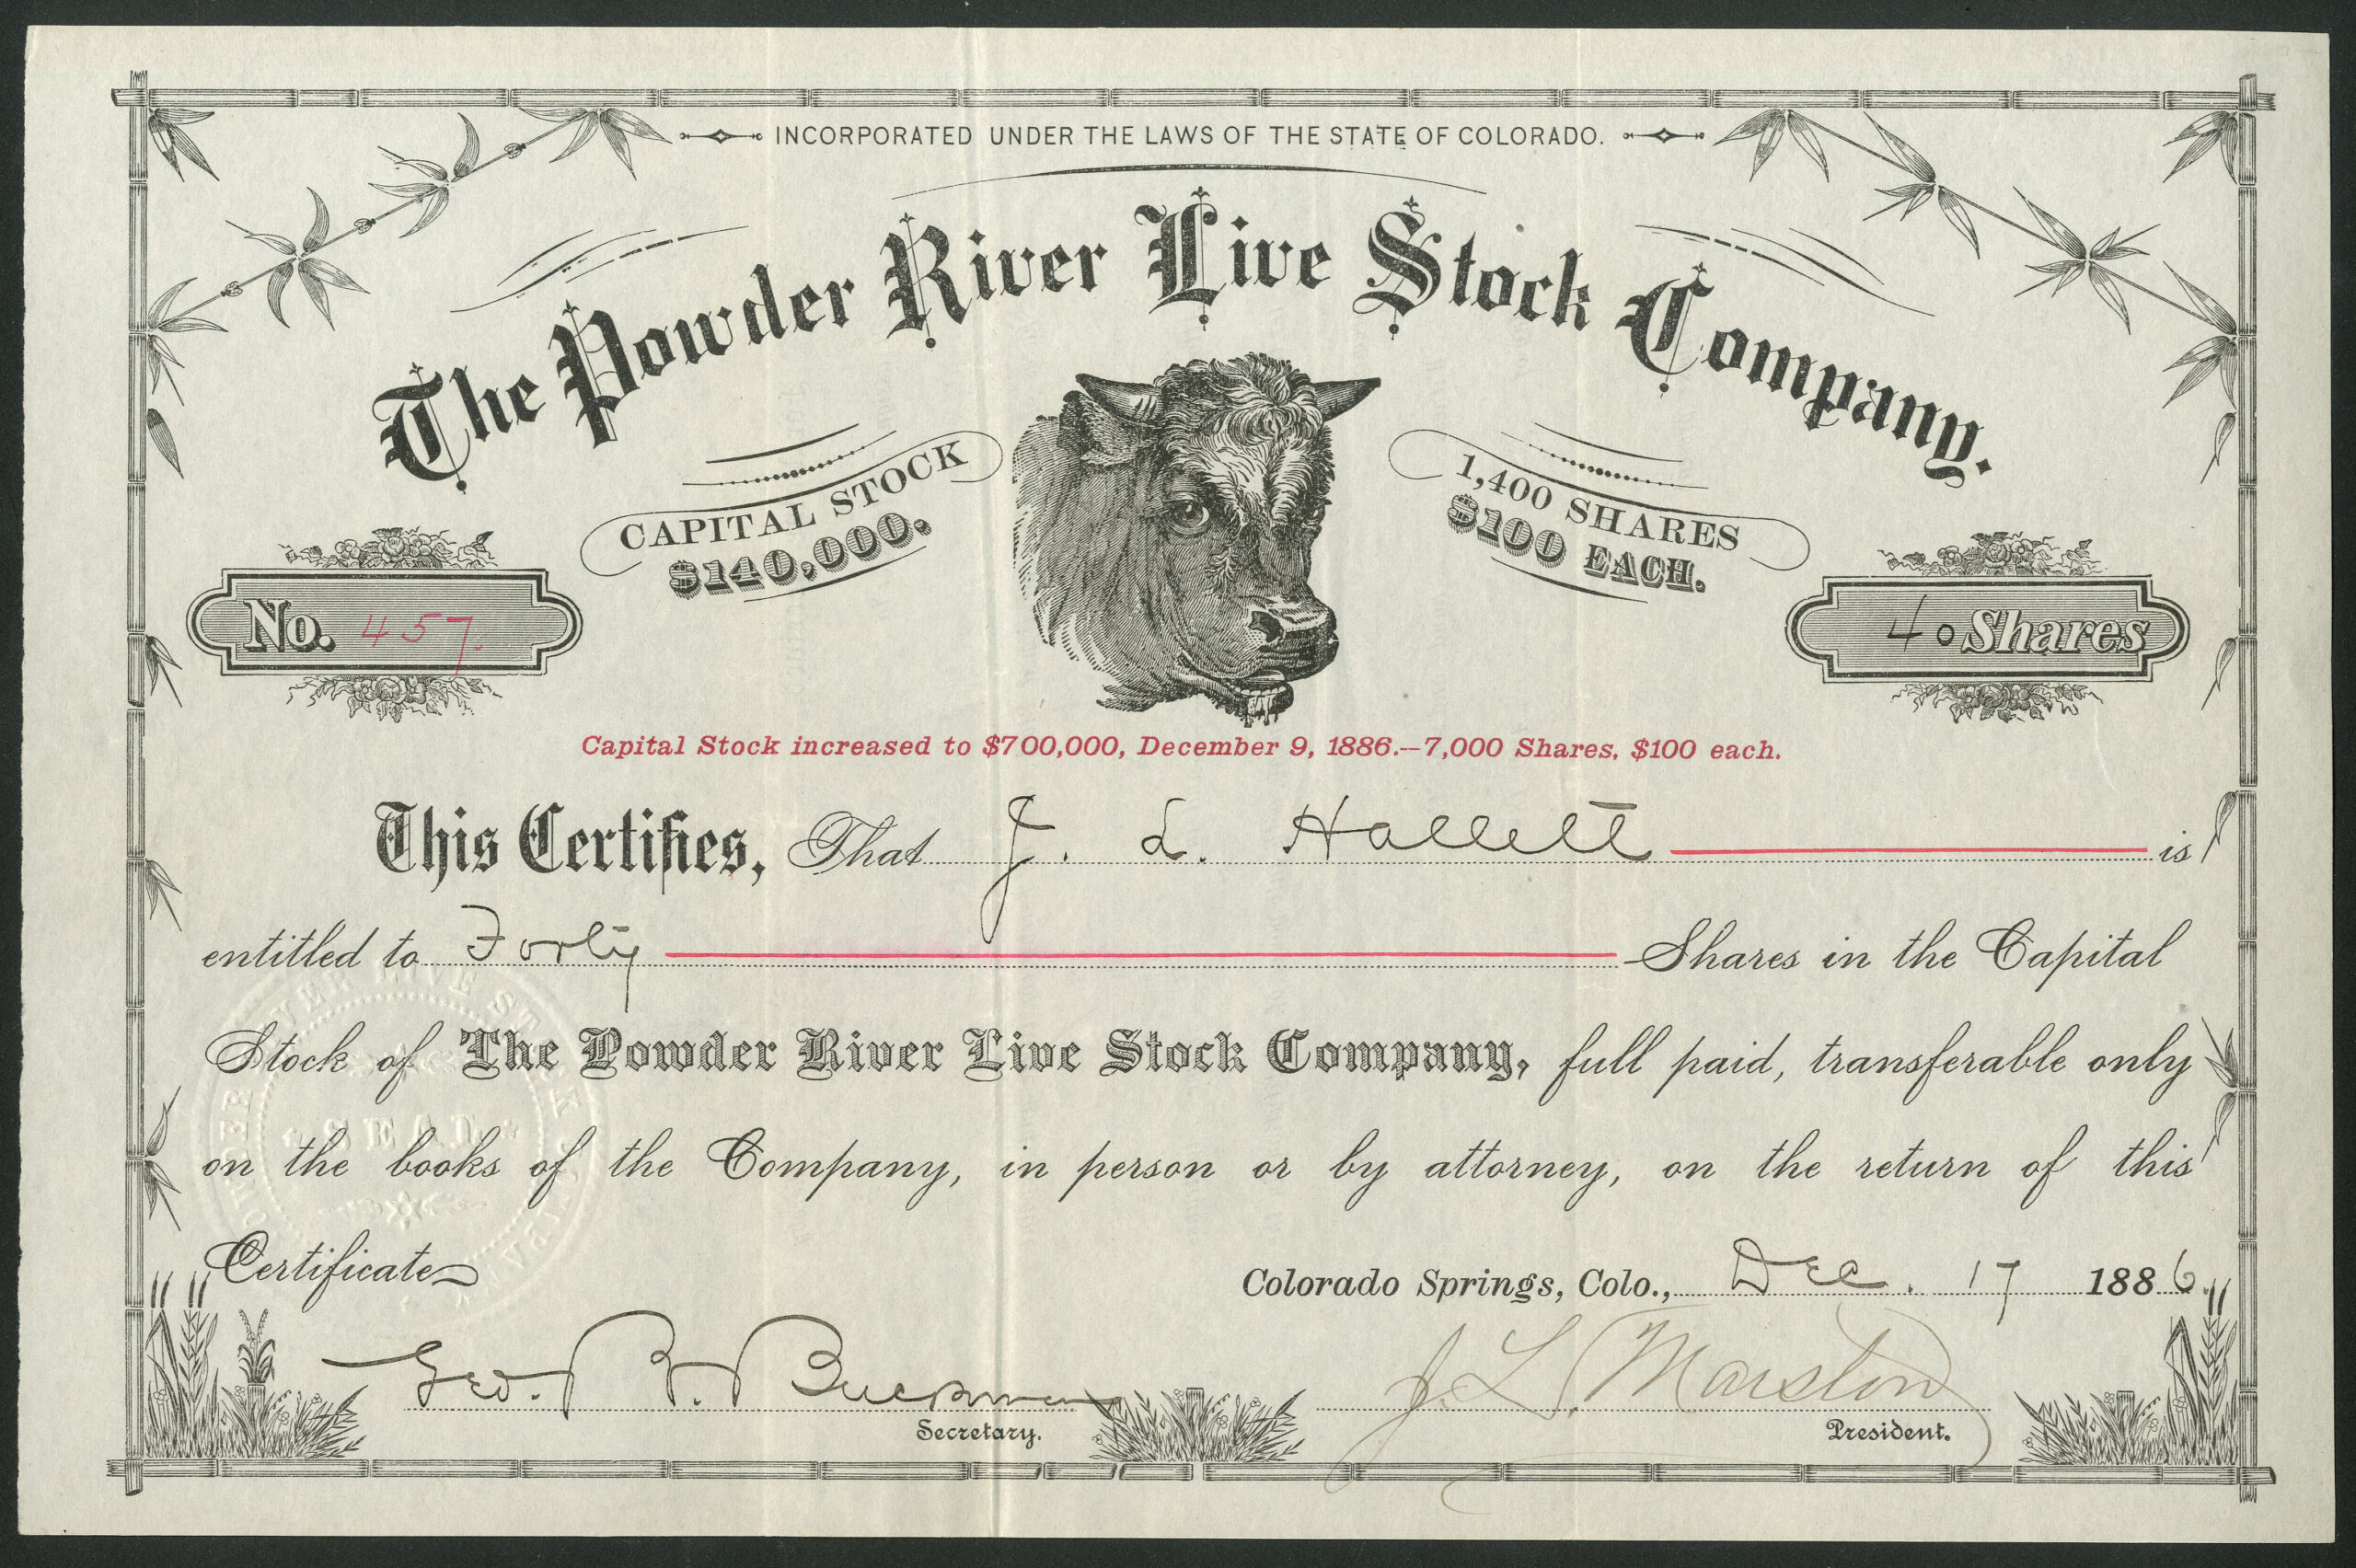 INCORPORATED UNDER THE LAWS OF THE STATE OF COLORADO.
The Powder River Live Stock Company.
CAPITAL STOCK
$140,000.
1,400 SHARES
$100 EACH.
No. 457.
40 Shares
Capital Stock increased to $700,000, December 9, 1886.—7,000 Shares, $100 each.
This Certifies, That J. L. Hallett is
entitled to Forty Shares in the Capital
Stock of The Powder River Live Stock Company, full paid, transferable only
on the books of the Company, in person or by attorney, on the return of this
Certificate
SEAL
Colorado Springs, Colo., Dec. 17 1886.
Geo. R. Buckman
Secretary.
J. L. Marston
President.